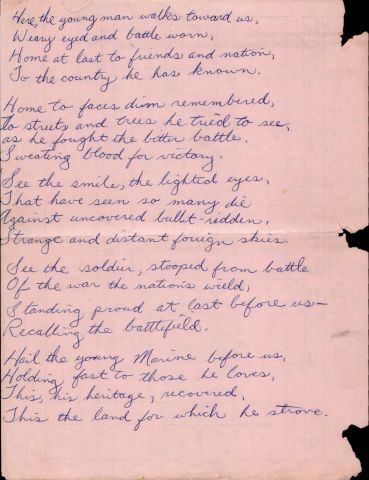 Here, the young man walks toward us,
Weary eyed and battle worn,
Home at last to friends and nation,
To the country he has known.
Home to faces dim remembered,
To streets and trees he tried to see,
as he fought the bitter battle.
Sweating blood for victory.
See the smile, the lighted eyes,
That have seen so many die
Against uncovered bullet-ridden,
Strange and distant foreign skies.
See the soldier, stooped from battle
Of the war the nations wield,
Standing proud at last before us—
Recalling the battlefield.
Hail the young Marine before us,
Holding fast to those he loves,
This, his heritage, recovered,
This the land for which he strove.